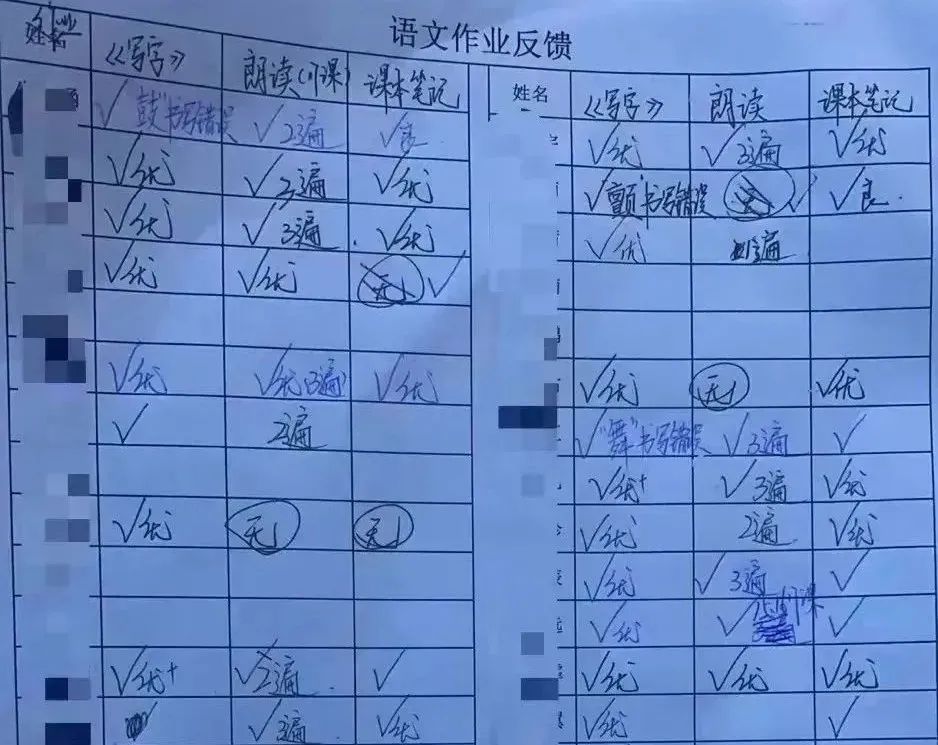 语文作业反馈
作业
姓名 《写字》 朗读(1课) 课本笔记
√ "鼓"书写错误 √2遍 √良
√优 √2遍 √优
√优 √3遍 √优
√优 √优 无 √
√优 √优(3遍) √优
√ 2遍
√优 无 无
√优+ √2遍 √
√3遍 √优
姓名 《写字》 朗读 课本笔记
√优 √3遍 √优
√颤书写错误 无 √ √良
√优 遍
√优 无 √优
√"舞"书写错误 √3遍 √
√优+ √3遍 √优
√优 2遍 √优
√优 √3遍 √
√优 √ 课 √
√优 √优 √优
√优 √